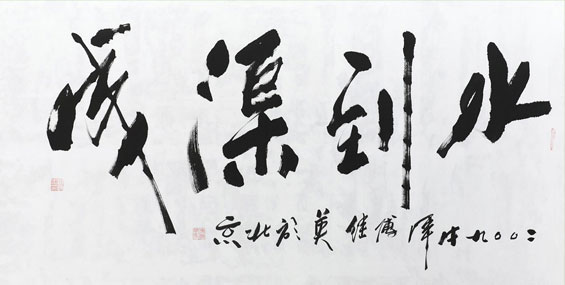 水到渠成
二〇〇九牛年傅英於北京